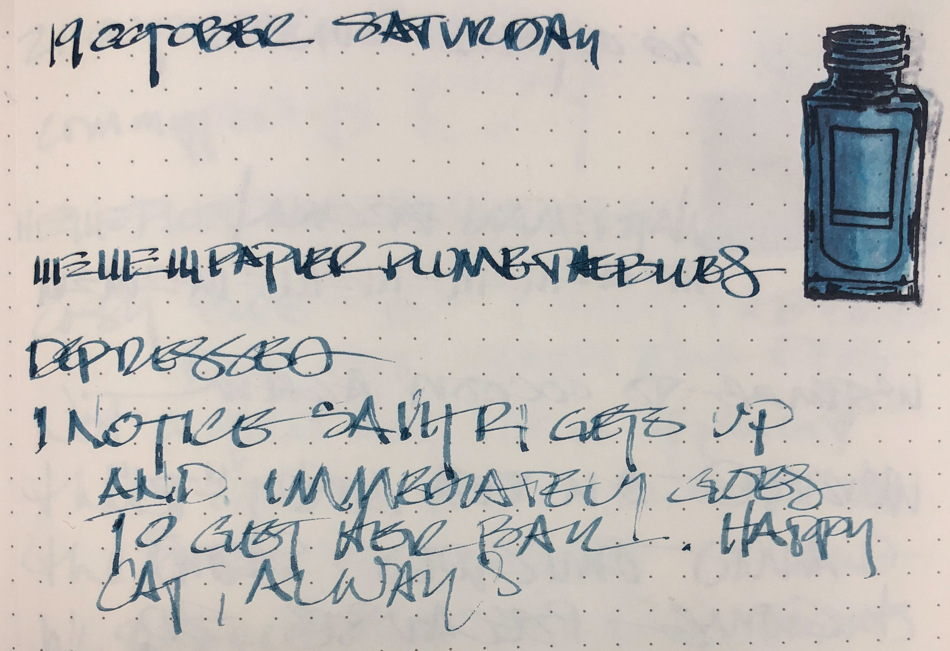 19 OCTOBER SATURDAY
PAPIER PLUME THE BLUES
DEPRESSED
I NOTICE SAVITRI GETS UP
AND IMMEDIATELY GOES
TO GET HER BALL. HAPPY
CAT, ALWAYS